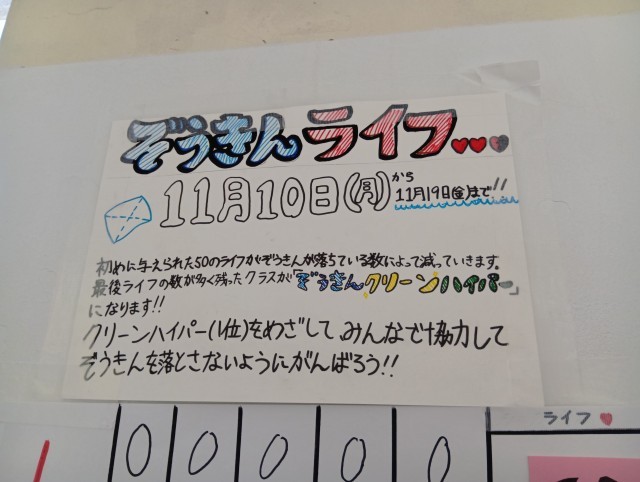 ぞうきんライフ
11月10日(月)から
11月19日(金)まで!!
初めに与えられた50のライフがぞうきんが落ちている数によって減っていきます。
最後ライフの数が多く残ったクラスが「ぞうきんクリーンハイパー」
になります!!
クリーンハイパー(1位)をめざして、みんなで協力して
ぞうきんを落とさないようにがんばろう!!
ライフ
0 0 0 0 0